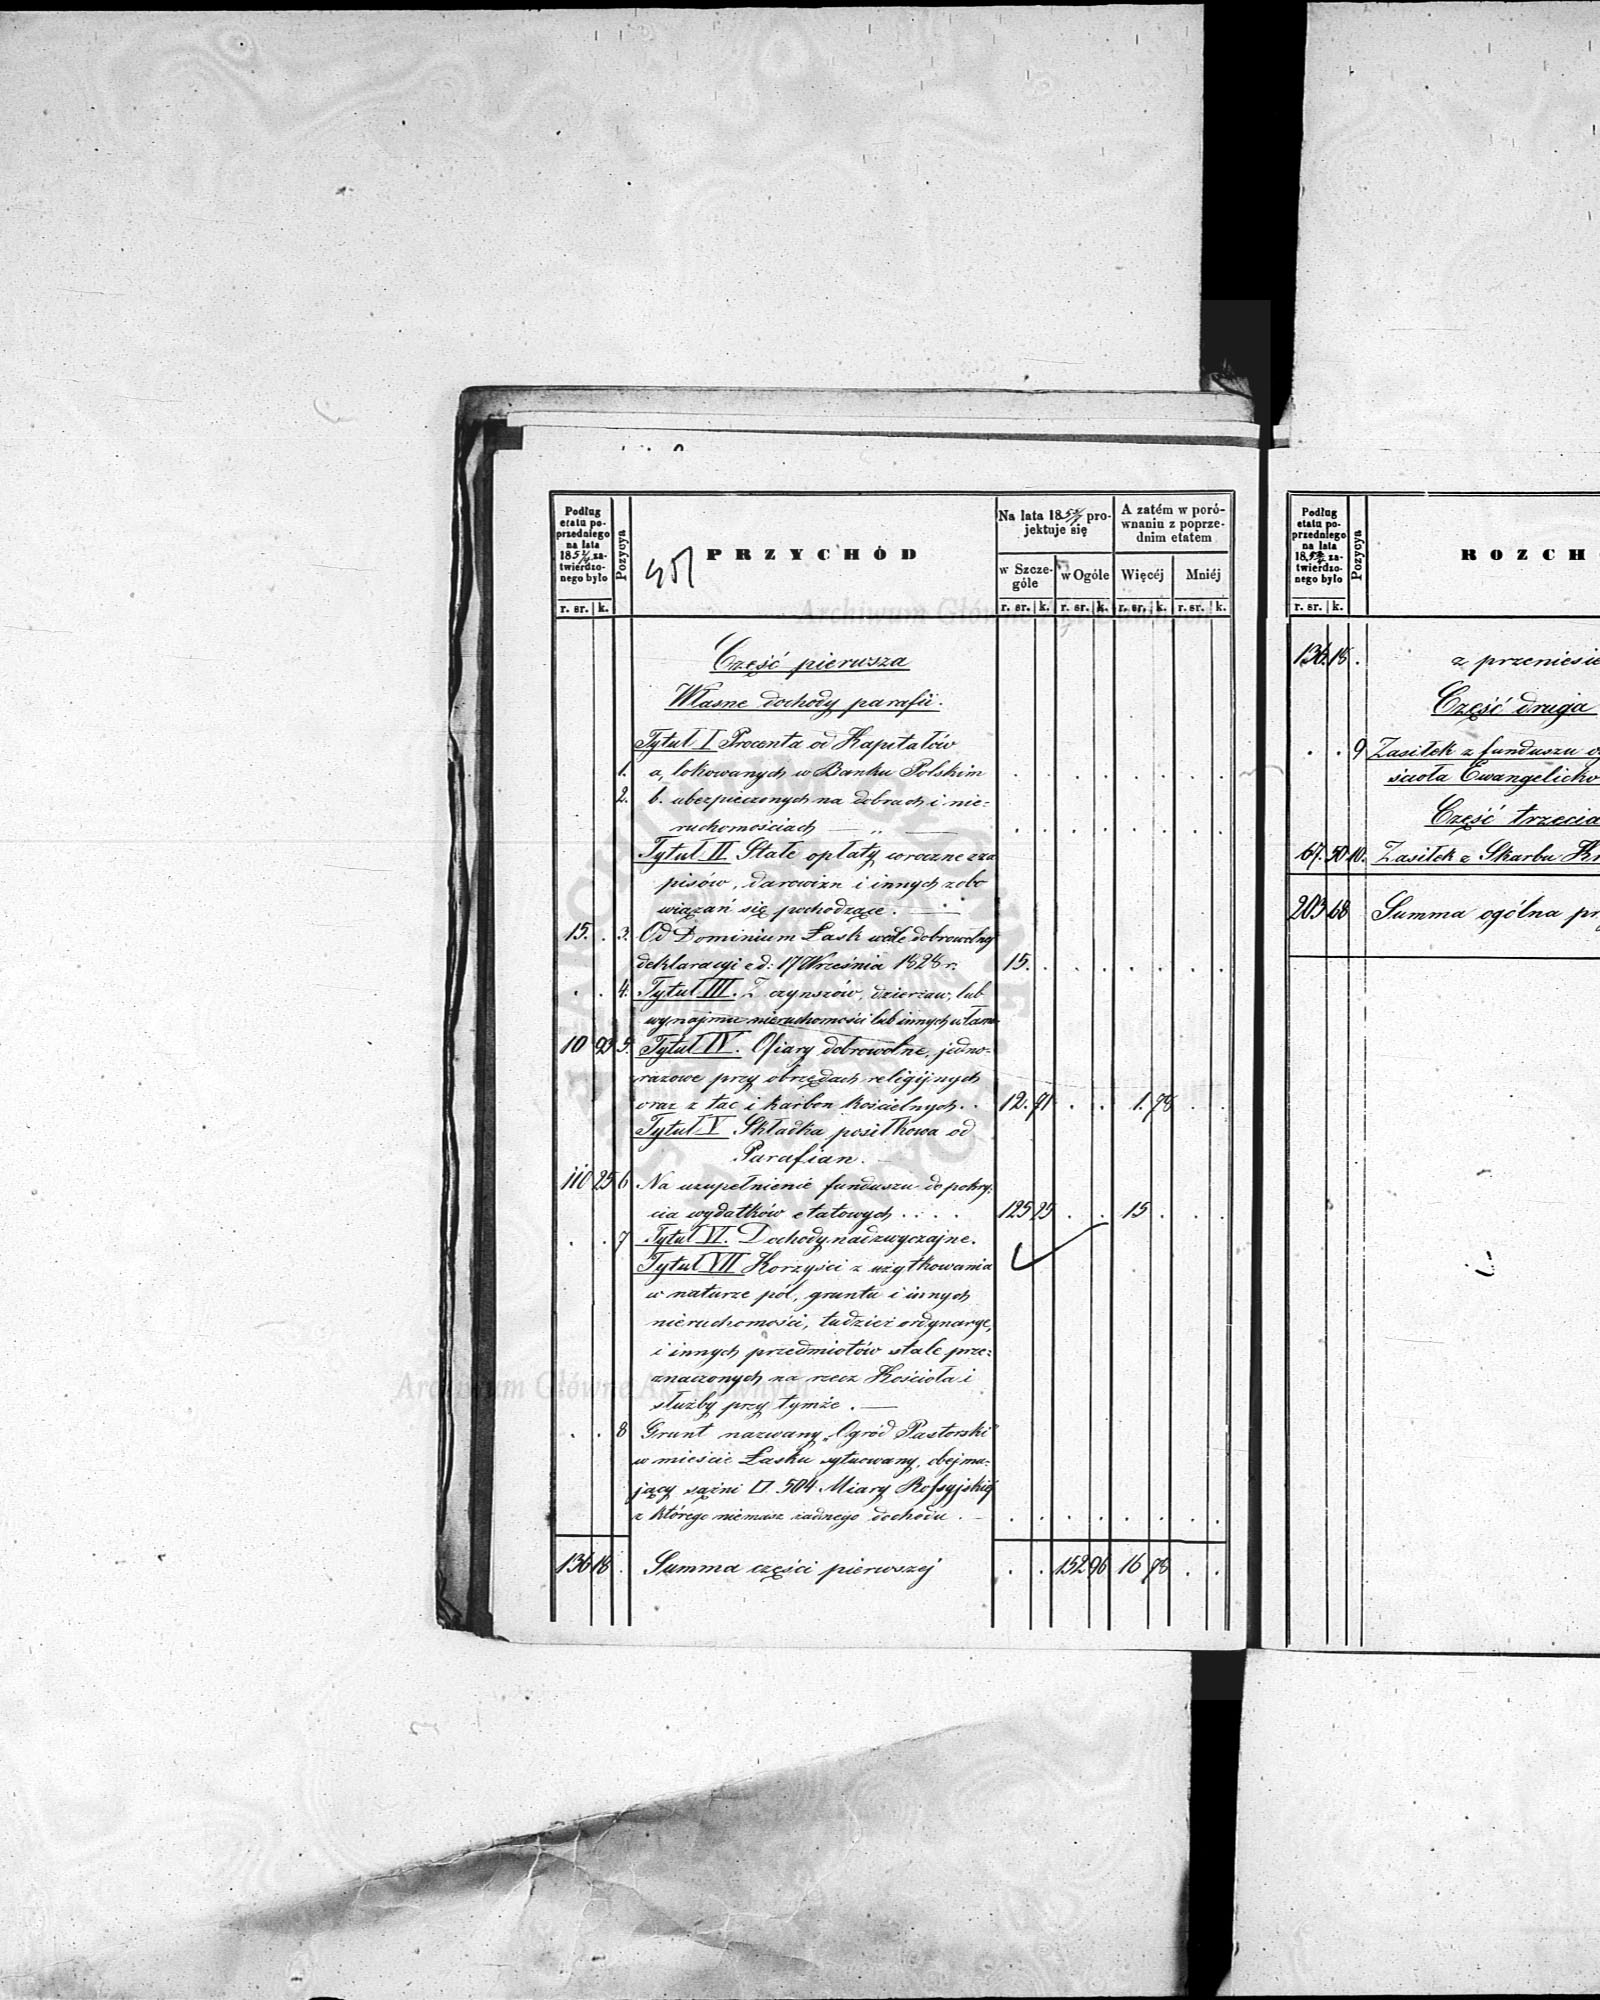 Podług
etatu po-
przedniego
na lata
185 za-
twierdzo-
nego było
r. sr. k.
Pozycya
PRZYCHÓD
Na lata 18 pro-
jektuje się
w Szcze-
góle
w Ogóle
r. sr. k. r. sr. k.
A zatém w poró-
wnaniu z poprze-
dnim etatem
Więcéj Mniéj
r. sr. k. r. sr. k.
Część pierwsza
Własne dochody parafii.
Tytuł I Procenta od Kapitałów
1. a, lokowanych w Banku Polskim
2. b. ubezpieczonych na dobrach i nie=
ruchomościach — „ —
Tytuł II Stałe opłaty wroczne z za
pisów, darowizn i innych zobo
wiązań się pochodzące. —
15. . 3. Od Dominium Łask wedle dobrowolnej
deklaracyi ed: 17 Września 1828 r. 15.
. . 4. Tytuł III. Z czynszów, dzierżaw, lub
wynajmu nieruchomości lub innych własn
10 93 5. Tytuł IV. Ofiary dobrowolne, jedno=
razowe przy obrzędach religijnych
oraz z tac i karbon kościelnych. . 12. 91 . . 1. 98 . .
Tytuł V. Składka posiłkowa od
Parafian. —
110 25 6 Na uzupełnienie funduszu do pokry=
cia wydatków etatowych . . . . 125 25 . . 15 . . .
. . 7 Tytuł VI. Dochody nadzwyczajne.
Tytuł VII Korzyści z użytkowania
w naturze pól, gruntu i innych
nieruchomości, tudzież ordynarye,
i innych przedmiotów stale prze=
znaczonych na rzecz Kościoła i
służby przy tymże. —
. . 8 Grunt nazwany „Ogród Pastorski"
w mieście Łasku sytuowany, obejmu=
jący sążni □. 504 Miary Rossyjskiej
z którego niemasz żadnego dochodu. —
136 18 . Summa części pierwszej . . 152 96 16 98 . .
Podług
etatu po-
przedniego
na lata
18 za-
twierdzo-
nego było
r. sr. k.
Pozycya
ROZCH
136 18 . z przeniesie
Część druga
. . 9 Zasiłek z funduszu o
ścioła Ewangelicko
Część trzecia
67. 50 10. Zasiłek z Skarbu Kr
203 68 Summa ogólna pr
Archiwum Główne Akt Dawnych
Archiwum Główne Akt Dawnych